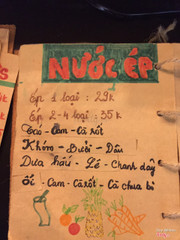 NƯỚC ÉP
Ép 1 loại : 29k
Ép 2-4 loại : 35k
Táo - Cam - Cà rốt
Khóm - Bưởi - Dâu
Dưa hấu - Lê - Chanh dây
Ổi - Cam - Cà rốt - Cà chua bi